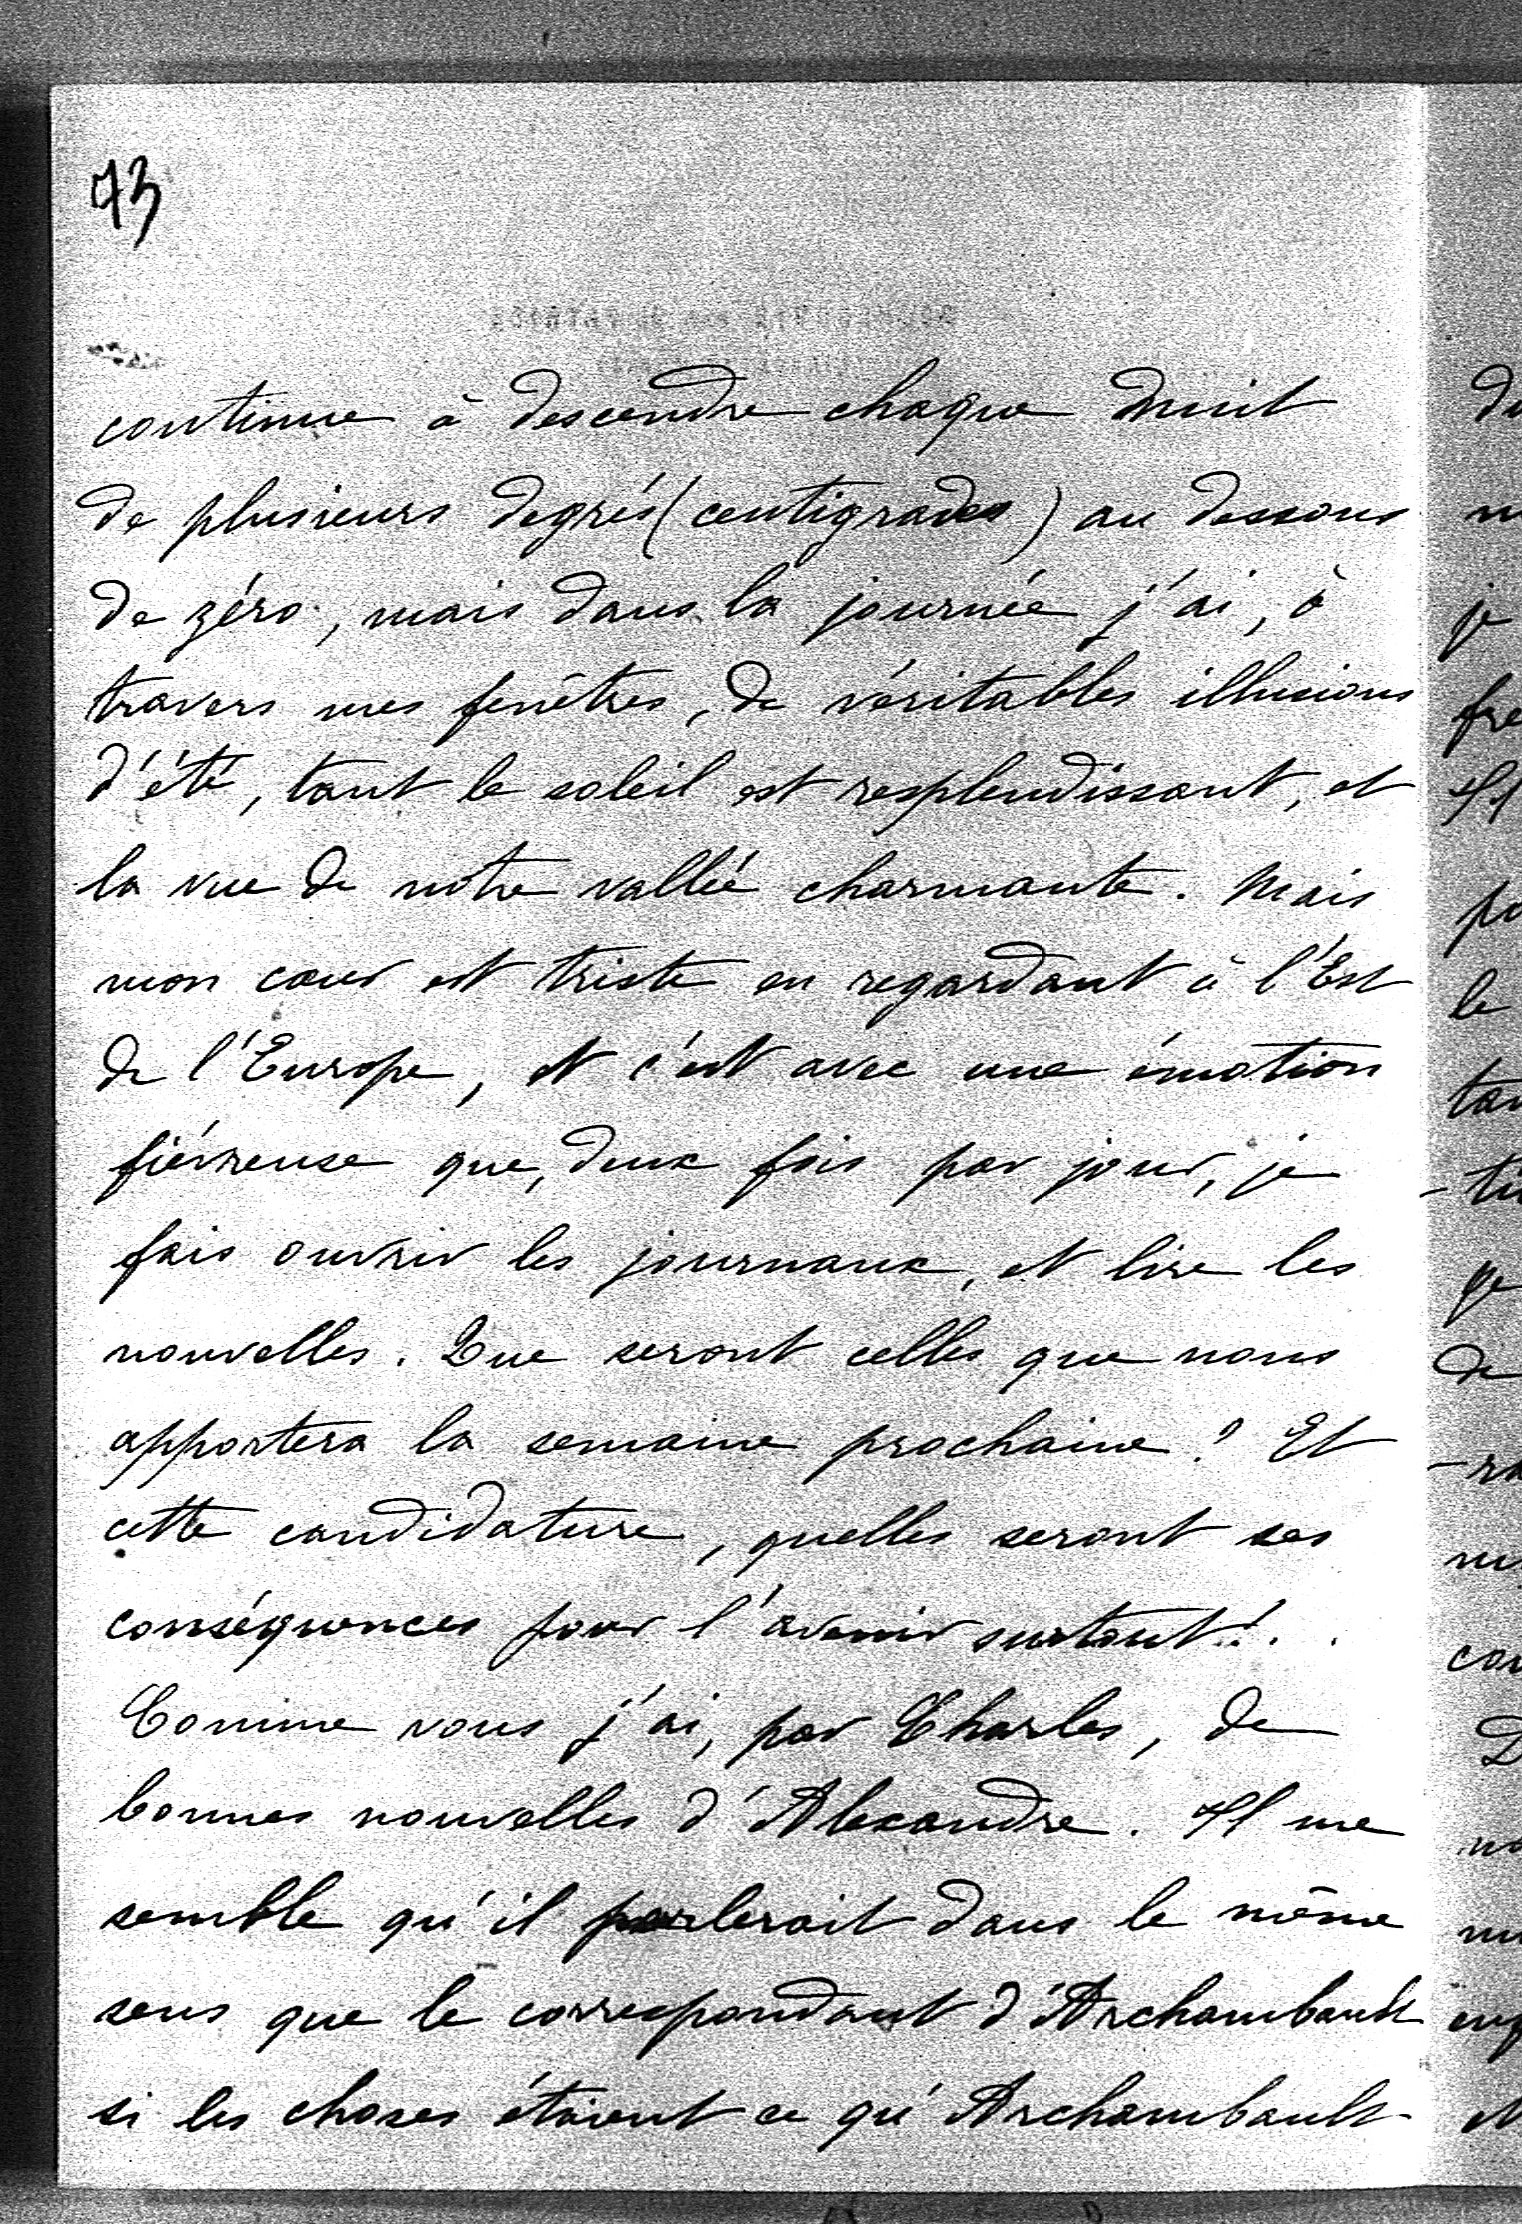 73
continue à descendre chaque nuit
de plusieurs degrés (centigrades) au dessous
de zéro, mais dans la journée j'ai, à
travers mes fenêtres, de véritables illusions
d'été, tant le soleil est resplendissant, et
la vue de notre vallée charmante. Mais
mon cœur est triste en regardant à l'Est
de l'Europe, et c'est avec une émotion
fiévreuse que, deux fois par jour, je
fais ouvrir les journaux, et lire les
nouvelles. Que seront celles que nous
apportera la semaine prochaine ? Et
cette candidature, quelles seront ses
conséquences pour l'avenir surtout !..
Comme vous j'ai, par Charles, de
bonnes nouvelles d'Alexandre. Il me
semble qu'il parlerait dans le même
sens que le correspondant d'Archambault
si les choses étaient ce qu'Archambault